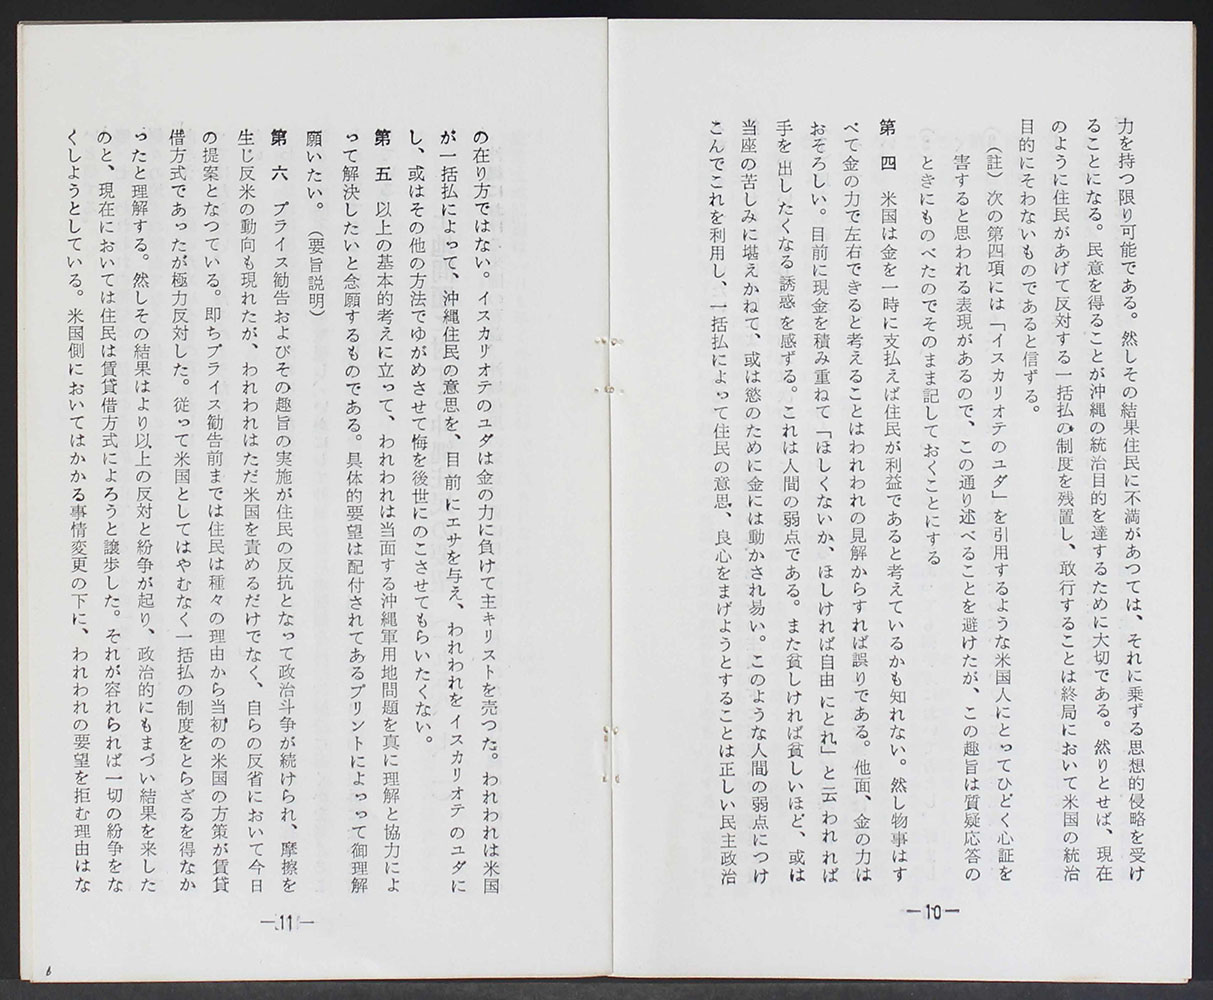 力を持つ限り可能である。然しその結果住民に不満があつては、それに乗ずる思想的侵略を受け
ることになる。民意を得ることが沖縄の統治目的を達するために大切である。然りとせば、現在
のように住民があげて反対する一括払の制度を残置し、敢行することは終局において米国の統治
目的にそわないものであると信ずる。
(註)次の第四項には「イスカリオテのユダ」を引用するような米国人にとってひどく心証を
害すると思われる表現があるので、この通り述べることを避けたが、この趣旨は質疑応答の
ときにものべたのでそのまま記しておくことにする
第 四 米国は金を一時に支払えば住民が利益であると考えているかも知れない。然し物事はす
べて金の力で左右できると考えることはわれわれの見解からすれば誤りである。他面、金の力は
おそろしい。目前に現金を積み重ねて「ほしくないか、ほしければ自由にとれ」と云われれば
手を出したくなる誘惑を感ずる。これは人間の弱点である。また貧しければ貧しいほど、或は
当座の苦しみに堪えかねて、或は慾のために金には動かされ易い。このような人間の弱点につけ
こんでこれを利用し、一括払によって住民の意思、良心をまげようとすることは正しい民主政治
—10—
の在り方ではない。イスカリオテのユダは金の力に負けて主キリストを売つた。われわれは米国
が一括払によって、沖縄住民の意思を、目前にエサを与え、われわれをイスカリオテのユダに
し、或はその他の方法でゆがめさせて悔を後世にのこさせてもらいたくない。
第 五 以上の基本的考えに立って、われわれは当面する沖縄軍用地問題を真に理解と協力によ
って解決したいと念願するものである。具体的要望は配付されてあるプリントによっって御理解
願いたい。(要旨説明)
第 六 プライス勧告およびその趣旨の実施が住民の反抗となって政治斗争が続けられ、摩擦を
生じ反米の動向も現れたが、われわれはただ米国を責めるだけでなく、自らの反省において今日
の提案となつている。即ちプライス勧告前までは住民は種々の理由から当初の米国の方策が賃貸
借方式であったが極力反対した。従って米国としてはやむなく一括払の制度をとらざるを得なか
ったと理解する。然しその結果はより以上の反対と紛争が起り、政治的にもまづい結果を来した
のと、現在においては住民は賃貸借方式によろうと譲歩した。それが容れられれば一切の紛争をな
くしようとしている。米国側においてはかかる事情変更の下に、われわれの要望を拒む理由はな
—11—
6